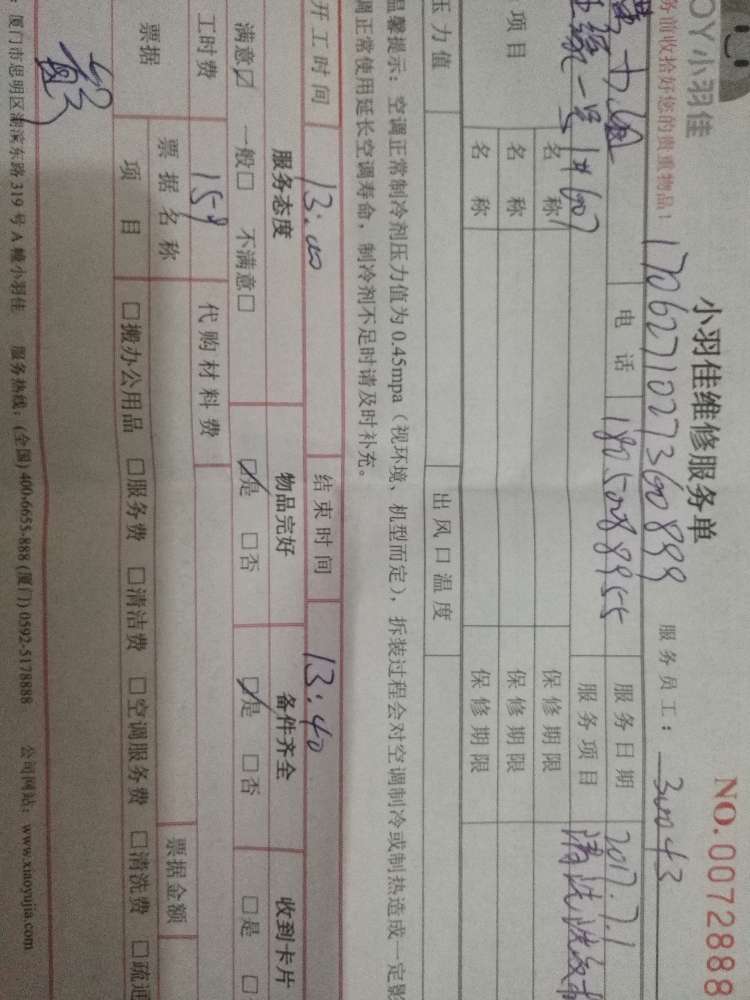 OY小羽佳
务前收拾好您的贵重物品！
小羽佳维修服务单
NO.0072888
17062710273600899
服务员工：30043
电话 18050088955
服务日期 2017.7.1
一号 1#607
服务项目 清洗洗衣机
项目
名称 保修期限
名称 保修期限
名称 保修期限
压力值 出风口温度
温馨提示：空调正常制冷剂压力值为0.45mpa（视环境、机型而定），拆装过程会对空调制冷或制热造成一定影
调正常使用延长空调寿命，制冷剂不足时请及时补充。
开工时间 13:00 结束时间 13:40
服务态度 物品完好 备件齐全 收到卡片
满意☑ 一般□ 不满意□ ☑是 □否 ☑是 □否 □是 □
工时费 159 代购材料费
票据 票据名称 票据金额
项目 □搬办公用品 □服务费 □清洁费 □空调服务费 □清洗费 □疏通
：厦门市思明区湖滨东路319号A幢小羽佳 服务热线：(全国) 400-6655-888 (厦门) 0592-5178888 公司网站：www.xiaoyujia.com